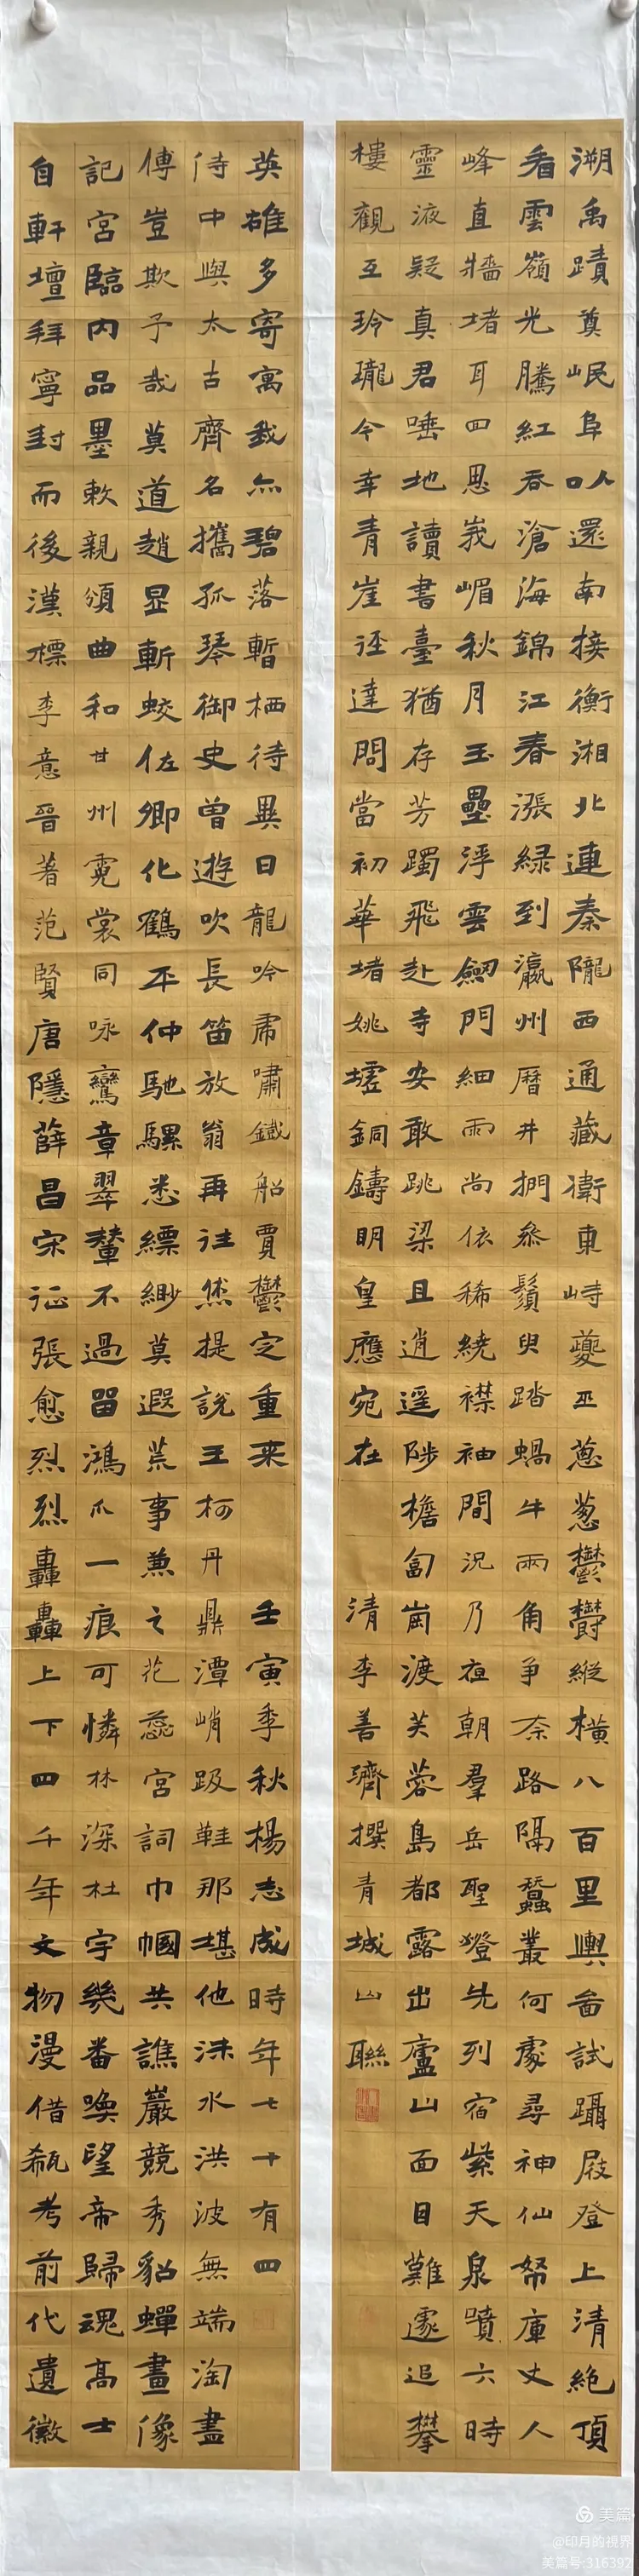 溯禹蹟奠岷阜叺還南接衡湘北連秦隴西通藏衛東峙夔巫蔥蔥鬱鬱縱橫八百里輿啚試躡屐登上清絕頂
看雲嶺光騰紅吞滄海錦江春漲綠到瀛州曆井捫參鬚臾踏蝸牛兩角爭奈路隔蠶叢何處尋神仙帑庫丈人
峰直牆堵耳四思峩嵋秋月玉壘浮雲劒門細雨尚依稀繞襟袖間況乃夜朝羣岳聖燈先列宿紫天泉噴六時
靈液疑真君唾地讀書臺猶存芳躅飛赴寺安敢跳梁且逍遥陟檐匐崗渡芙蓉島都露出廬山面目難遽追攀
樓觀互玲瓏今幸青崖逕達問當初華堵姚墟銅鑄明皇應宛在
清李善濟撰青城山聯
自軒壇拜寧封而後漢標李意晉著范賢唐隱薛昌宋征張愈烈烈轟轟上下四千年文物漫借瓻考前代遺徽
記宮臨內品墨敕親頒曲和甘州霓裳同咏鸞章翠輦不過畱鴻爪一痕可憐林深杜宇幾番喚望帝歸魂高士
傅豈欺予哉莫道趙昱斬蛟佐卿化鶴平仲馳騾悉縹緲莫遐荒事兼之花蕊宮詞巾幗共譙巖競秀貂蟬畫像
侍中與太古齊名攜孤琴御史曾遊吹長笛放翁再往然提說王柯丹鼎潭峭趿鞋那堪他沬水洪波無端淘盡
英雄多寄寓我亦碧落暫栖待異日龍吟虎嘯鐵船賈鬱定重来
壬寅季秋楊志成時年七十有四
美篇
@印月的視界
美篇号:316392